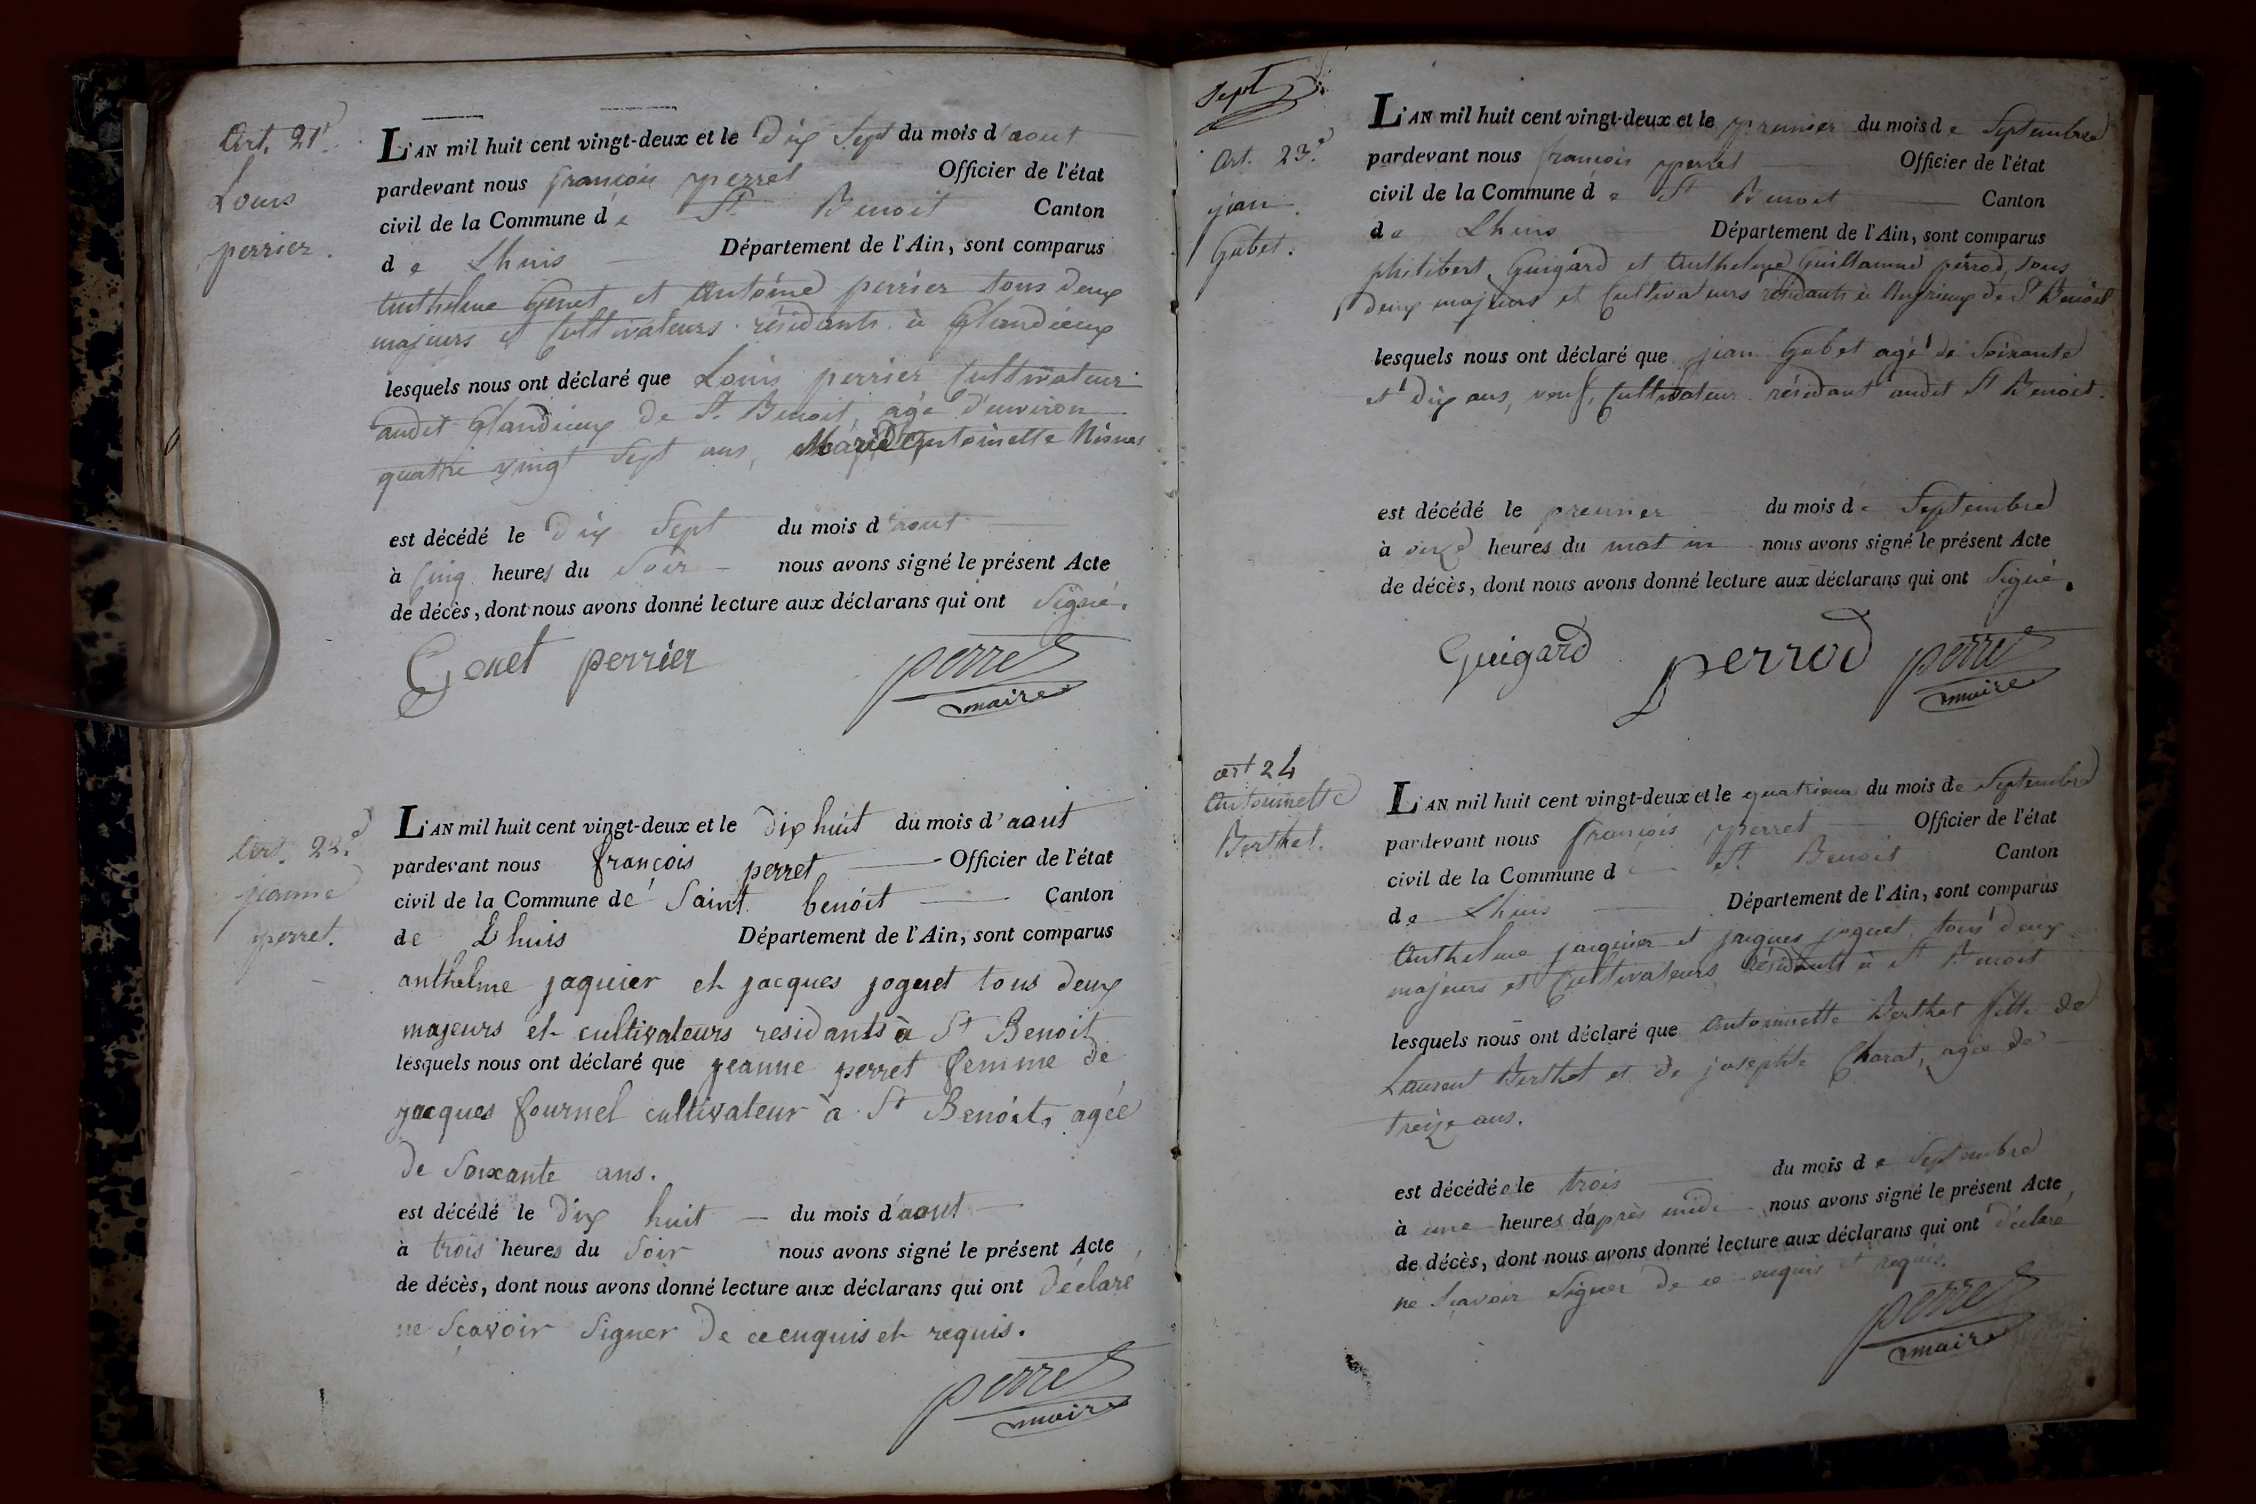 Art. 21e.
Louis
perrier.
L'AN mil huit cent vingt-deux et le dix Sept du mois d'aout
pardevant nous françois perret Officier de l'état
civil de la Commune de St. Benoit Canton
de Lhuis Département de l'Ain, sont comparus
Anthelme Genet et Antoine perrier tous deux
majeurs et Cultivateurs résidants à Glandieux
lesquels nous ont déclaré que Louis perrier Cultivateur
audit Glandieux de St. Benoit, agé d'environ
quatre vingt Sept ans, Marié Antoinette
est décédé le dix Sept du mois d'aout
à Cinq heures du Soir nous avons signé le présent Acte
de décès, dont nous avons donné lecture aux déclarans qui ont Signé.
Genet perrier perret
maire
Art. 22e.
jeanne
perret.
L'AN mil huit cent vingt-deux et le dix huit du mois d'aout
pardevant nous françois perret Officier de l'état
civil de la Commune de Saint benoit Canton
de Lhuis Département de l'Ain, sont comparus
anthelme jaquier et jacques joguet tous deux
majeurs et cultivateurs residants à St Benoit
lesquels nous ont déclaré que jeanne perret femme de
jacques fournel cultivateur à St Benoit, agée
de Soixante ans.
est décédé le dix huit du mois d'aout
à trois heures du Soir nous avons signé le présent Acte
de décès, dont nous avons donné lecture aux déclarans qui ont déclaré
ne Sçavoir Signer de ce enquis et requis.
perret
maire
Sept
Art. 23e.
jean
Gubet.
L'AN mil huit cent vingt-deux et le premier du mois de Septembre
pardevant nous françois perret Officier de l'état
civil de la Commune de St Benoit Canton
de Lhuis Département de l'Ain, sont comparus
philibert Guigard et Anthelme Guillaume perrod, tous
deux majeurs et Cultivateurs résidants à de St Benoit
lesquels nous ont déclaré que jean Gubet agé de Soixante
et dix ans, veuf, Cultivateur résidant audit St Benoit.
est décédé le premier du mois de Septembre
à onze heures du matin nous avons signé le présent Acte
de décès, dont nous avons donné lecture aux déclarans qui ont Signé.
Guigard perrod perret
maire
art 24
Antoinette
Berthet.
L'AN mil huit cent vingt-deux et le quatrieme du mois de Septembre
pardevant nous françois perret Officier de l'état
civil de la Commune de St. Benoit Canton
de Lhuis Département de l'Ain, sont comparus
Anthelme jaquier et jacques joguet, tous deux
majeurs et Cultivateurs résidants à St Benoit
lesquels nous ont déclaré que Antoinette Berthet fille de
Laurent Berthet et de josephte Charat, agée de
treize ans.
est décédée le trois du mois de Septembre
à une heures d'après midi nous avons signé le présent Acte
de décès, dont nous avons donné lecture aux déclarans qui ont déclaré
ne Sçavoir Signer de ce enquis et requis.
perret
maire